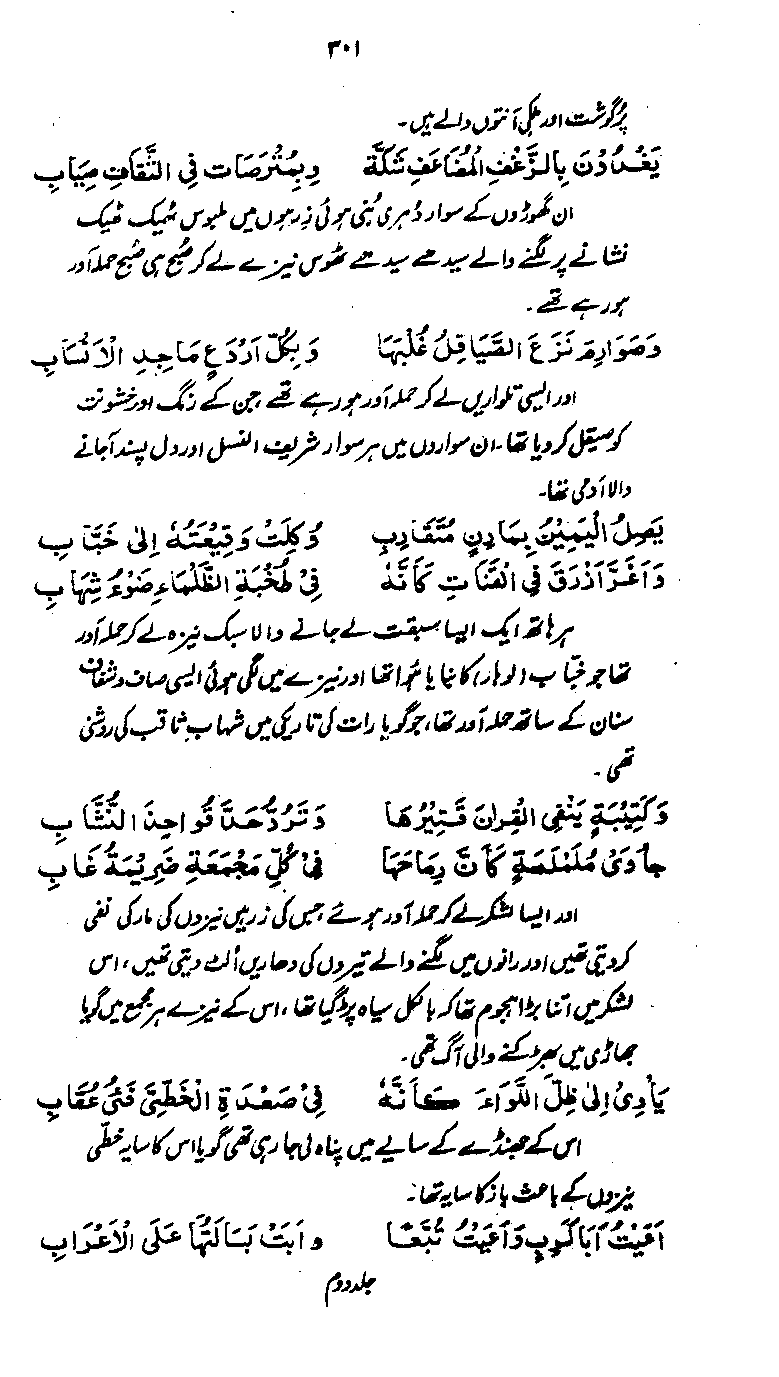 ۳۰۱
پُرگوشت اور ہلکی آنتوں والے ہیں۔
يَغْدُوْنَ بِالزَّغْفِ الْمُضَاعَفِ شَكَّةً وَبِمُتْرَصَاتٍ فِي الثِّقَافِ صِيَابِ
ان گھوڑوں کے سوار دُہری بُنی ہوئی زِرہوں میں ملبوس ٹھیک ٹھیک
نشانے پر لگنے والے سیدھے سیدھے ٹھوس نیزے لے کر صُبح ہی صُبح حملہ آور
ہو رہے تھے۔
وَصَوَارِمٍ نَزَعَ الصَّيَاقِلُ غُلْبَهَا وَبِكُلِّ اَرْوَعَ مَاجِدِ الْاَنْسَابِ
اور ایسی تلواریں لے کر حملہ آور ہو رہے تھے، جن کے زنگ اور خشونت
کو صیقل کر دیا تھا۔ ان سواروں میں ہر سوار شریف النسل اور دل پسند آجانے
والا آدمی تھا۔
يَصِلُ الْيَمِيْنُ بِمَارِنٍ مُتَقَارِبٍ وُكِلَتْ وَقِيْعَتُهٗ اِلىٰ خَبَّابِ
وَاَغَرَّ اَزْرَقَ فِي الْقَنَاتِ كَاَنَّهٗ فِيْ طُخْيَةِ الظَّلْمَاءِ ضَوْءُ شِهَابِ
ہر ہاتھ ایک ایسا سبقت لے جانے والا سبک نیزہ لے کر حملہ آور
تھا جو خبّاب (لوہار) کا بنایا ہوا تھا اور نیزے میں لگی ہوئی ایسی صاف و شفاف
سنان کے ساتھ حملہ آور تھا، جو گویا رات کی تاریکی میں شہابِ ثاقب کی روشنی
تھی۔
وَكَتِيْبَةٍ يَنْفِى الْقِرَانَ قَتِيْرُهَا وَتَرُدُّ حَدَّ قَوَاحِذِ النُّشَّابِ
جَأْوٰى مُلَمْلَمَةٍ كَاَنَّ رِمَاحَهَا فِيْ كُلِّ مَجْمَعَةٍ ضَرِيْمَةُ غَابِ
اور ایسا لشکر لے کر حملہ آور ہوئے، جس کی زرہیں نیزوں کی مار کی نفی
کر دیتی تھیں اور رانوں میں لگنے والے تیروں کی دھاریں اُلٹ دیتی تھیں، اس
لشکر میں اتنا بڑا ہجوم تھا کہ بالکل سیاہ پڑ گیا تھا، اس کے نیزے ہر مجمع میں گویا
جھاڑی میں بھڑکنے والی آگ تھی۔
يَأْوِيْ اِلىٰ ظِلِّ اللِّوَاءِ كَاَنَّهٗ فِيْ صَعْدَةِ الْخَطِّيِّ فَيْءُ عُقَابِ
اس کے جھنڈے کے سایے میں پناہ لی جا رہی تھی گویا اس کا سایہ خطّی
نیزوں کے باعث باز کا سایہ تھا۔
اَعْيَتْ اَبَا كَرِبٍ وَاَعْيَتْ تُبَّعًا وَاَبَتْ بَسَالَتُهَا عَلَى الْاَعْرَابِ
جلد دوم